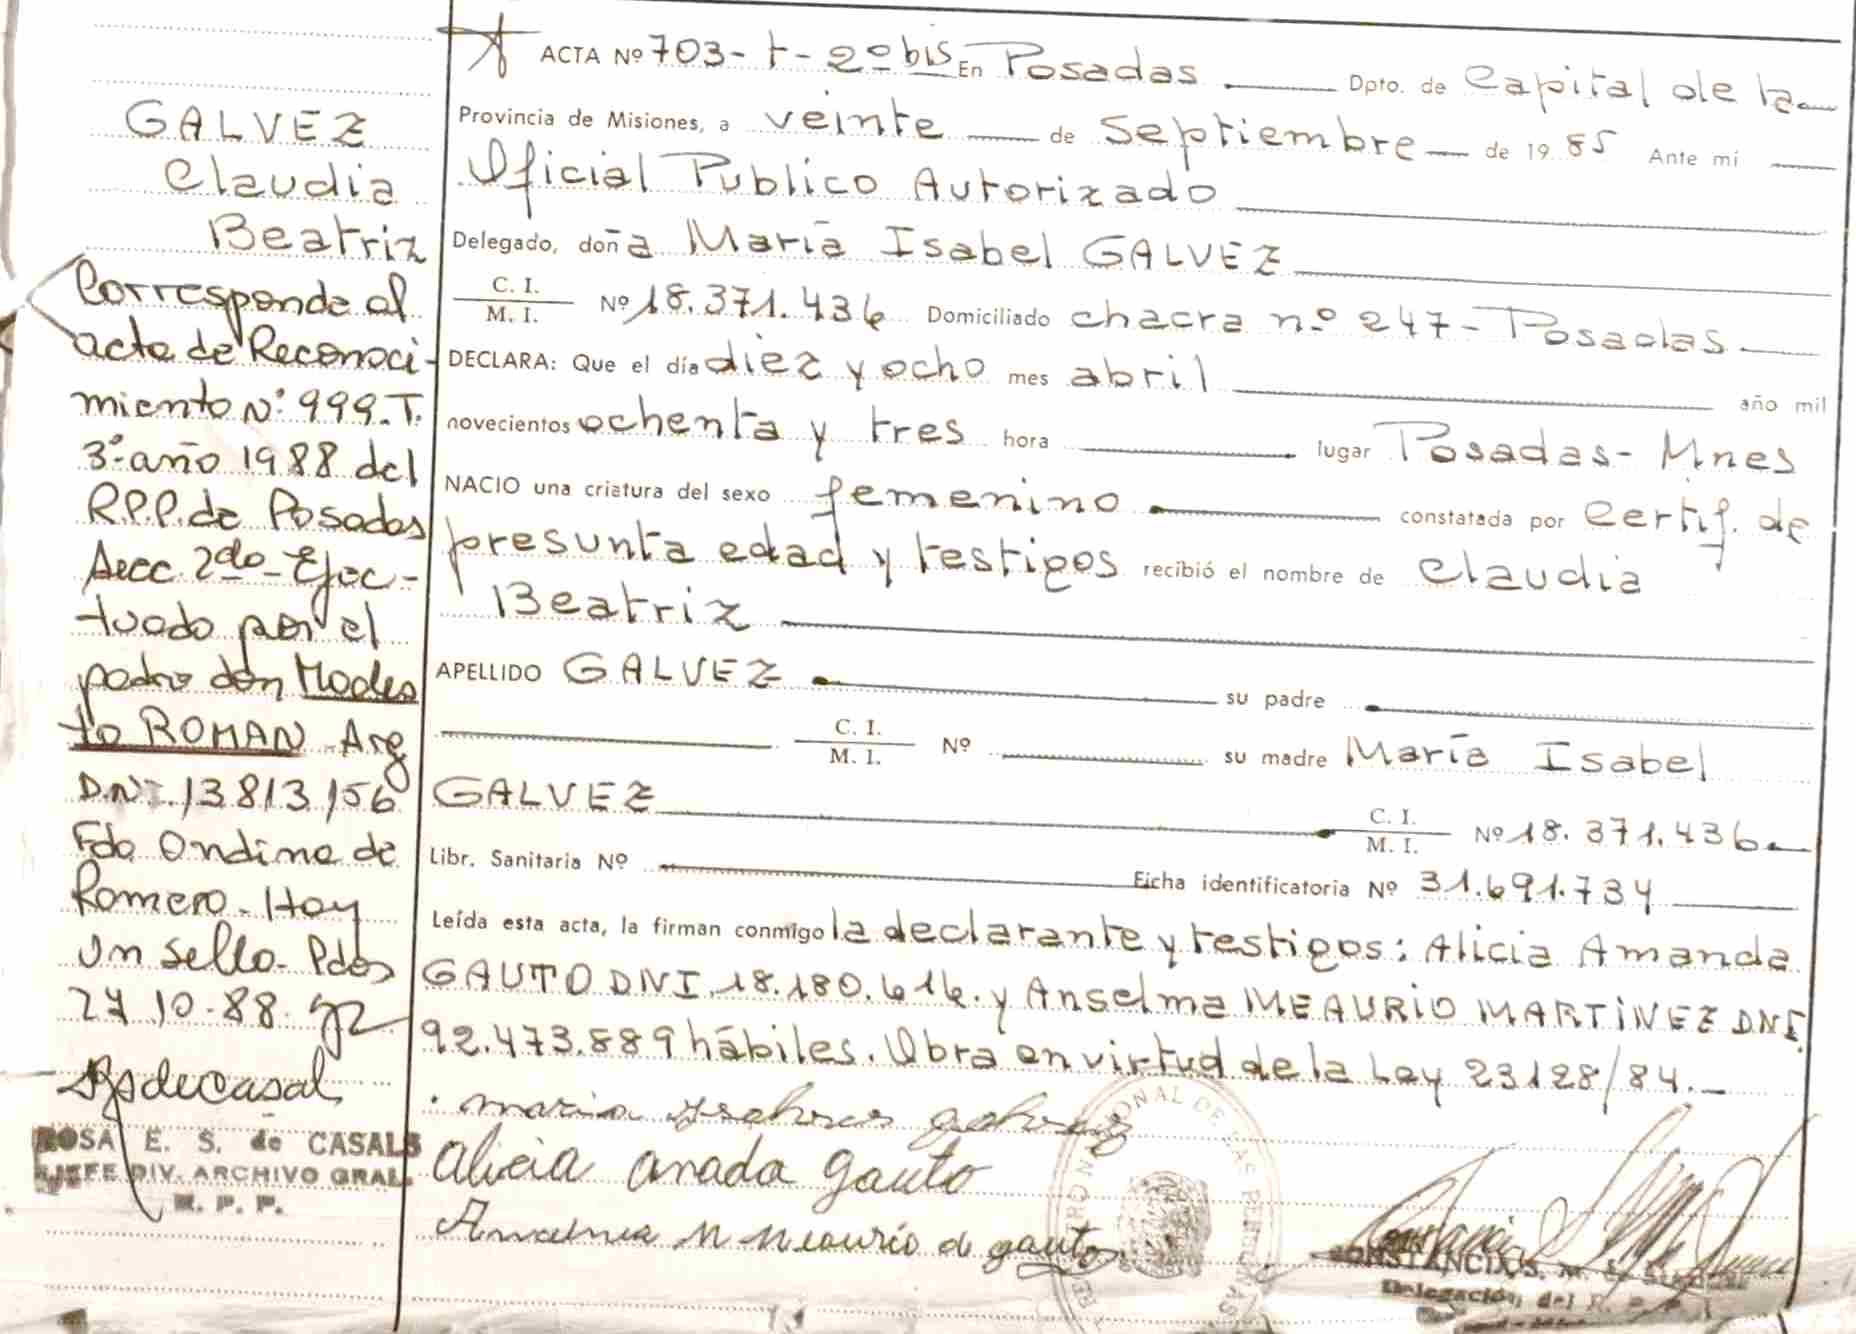 GALVEZ
Claudia
Beatriz
Corresponde al
acta de Reconoci-
miento Nº 999.T.
3º año 1988 del
R.P.P. de Posadas
Secc 2do- Efec-
tuado por el
padre don Modes
to ROMAN Arg
D.N.I. 13813156
Fdo Ondina de
Romero. Hay
un sello. Pdas
27 10-88.
ROSA E. S. de CASALS
JEFE DIV. ARCHIVO GRAL.
R. P. P.
ACTA Nº 703- t- 2º bis En Posadas Dpto. de Capital de la
Provincia de Misiones, a veinte de septiembre de 19 85 Ante mí
Oficial Publico Autorizado
Delegado, doña María Isabel GALVEZ
C. I.
M. I. Nº 18.371.436 Domiciliado chacra nº 247- Posadas
DECLARA: Que el día diez y ocho mes abril año mil
novecientos ochenta y tres hora lugar Posadas- Mnes
NACIO una criatura del sexo femenino constatada por Certif. de
presunta edad y testigos recibió el nombre de Claudia
Beatriz
APELLIDO GALVEZ su padre
C. I.
M. I. Nº su madre María Isabel
GALVEZ C. I.
M. I. Nº 18.371.436
Libr. Sanitaria Nº Ficha identificatoria Nº 31.691.734
Leída esta acta, la firman conmigo la declarante y testigos: Alicia Amanda
GAUTO DNI. 18.180.616. y Anselma MEAURIO MARTINEZ DNI.
92.473.889 hábiles. Obra en virtud de la Ley 23128/84.
alicia anada gauto